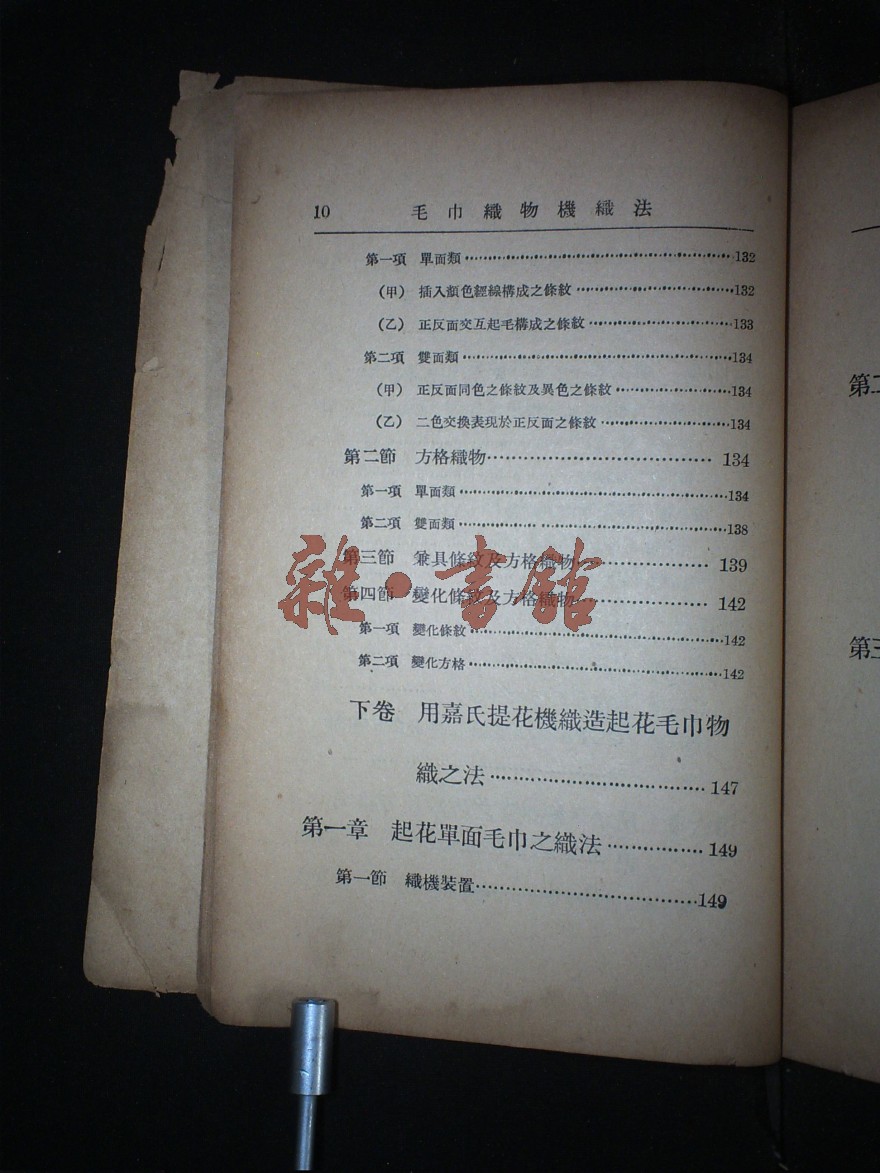 10 毛巾織物機織法
第一項 單面類 132
(甲) 插入顏色經線構成之條紋 132
(乙) 正反面交互起毛構成之條紋 133
第二項 雙面類 134
(甲) 正反面同色之條紋及異色之條紋 134
(乙) 二色交換表現於正反面之條紋 134
第二節 方格織物 134
第一項 單面類 134
第二項 雙面類 138
第三節 兼具條紋及方格織物 139
第四節 變化條紋及方格織物 142
第一項 變化條紋 142
第二項 變化方格 142
下卷 用嘉氏提花機織造起花毛巾物
織之法 147
第一章 起花單面毛巾之織法 149
第一節 織機裝置 149
雜·書館
第二
第三